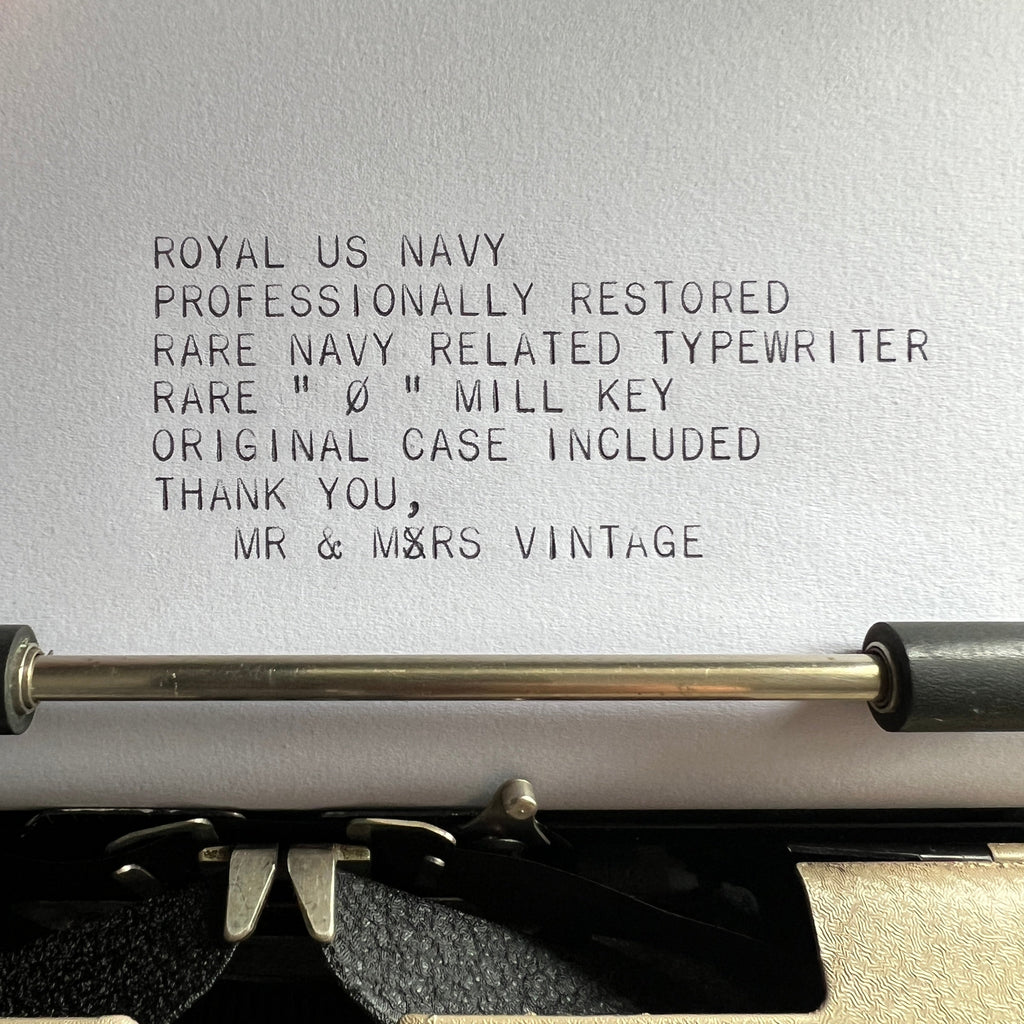 ROYAL US NAVY
PROFESSIONALLY RESTORED
RARE NAVY RELATED TYPEWRITER
RARE " Ø " MILL KEY
ORIGINAL CASE INCLUDED
THANK YOU,
MR & MXRS VINTAGE